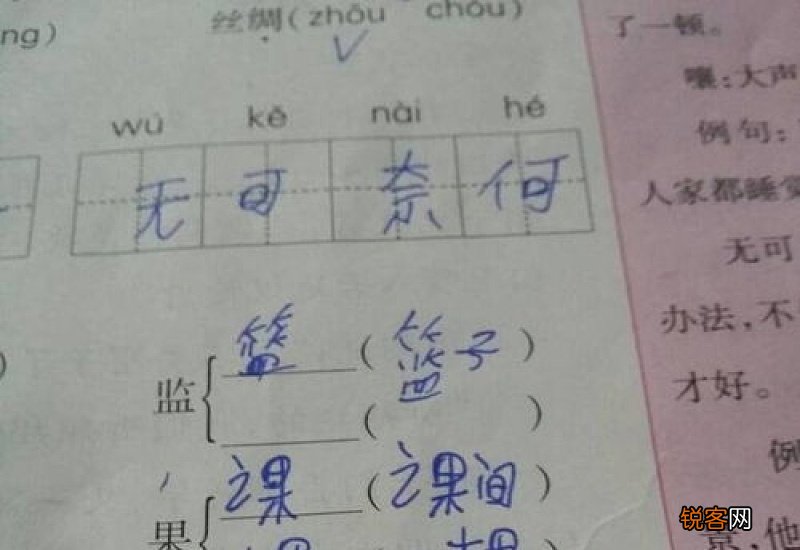 ng)
丝绸(zhōu chóu)
wú kě nài hé
无可奈何
监{篮(篮子)
( )
果{课(课间)
了一顿。
嚷:大声
例句:
人家都睡觉
无可
办法,不
才好。
例
意,他
锐客网